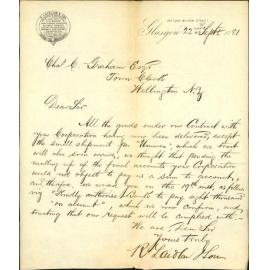 Glasgow 22nd Septr 1881
Chas. C. Graham Esqr
Town Clerk
Wellington N.Z.
Dear Sir
All the goods under our Contract with
your Corporation having now been delivered, except
the small shipment per "Wimmera", which we trust
will also soon arrive, we thought that pending the
making up of the final accounts your Corporation
would not object to pay us a sum to account,
and therefore we wired you on the 19th inst, as follow
ing "Kindly authorise Bank to pay eight thousand
"on account", which we now confirm, and
trusting that our request will be complied with:-
We are Dear Sir
Yours truly
R Laidlaw & Son